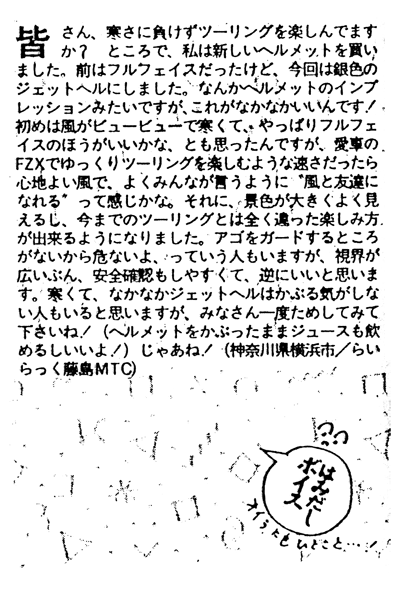 皆さん、寒さに負けずツーリングを楽しんでます
か？　ところで、私は新しいヘルメットを買い
ました。前はフルフェイスだったけど、今回は銀色の
ジェットヘルにしました。なんかヘルメットのインプ
レッションみたいですが、これがなかなかいいんです！
初めは風がビュービューで寒くて、やっぱりフルフェ
イスのほうがいいかな、とも思ったんですが、愛車の
FZXでゆっくりツーリングを楽しむような速さだったら
心地よい風で、よくみんなが言うように〝風と友達に
なれる〟って感じかな。それに、景色が大きくよく見
えるし、今までのツーリングとは全く違った楽しみ方
が出来るようになりました。アゴをガードするところ
がないから危ないよ、っていう人もいますが、視界が
広いぶん、安全確認もしやすくて、逆にいいと思いま
す。寒くて、なかなかジェットヘルはかぶる気がしな
い人もいると思いますが、みなさん一度ためしてみて
下さいね！（ヘルメットをかぶったままジュースも飲
めるしいいよ！）じゃあね！（神奈川県横浜市／らい
らっく藤島MTC）
はみだし
ボイス
オイラにもひとこと…！